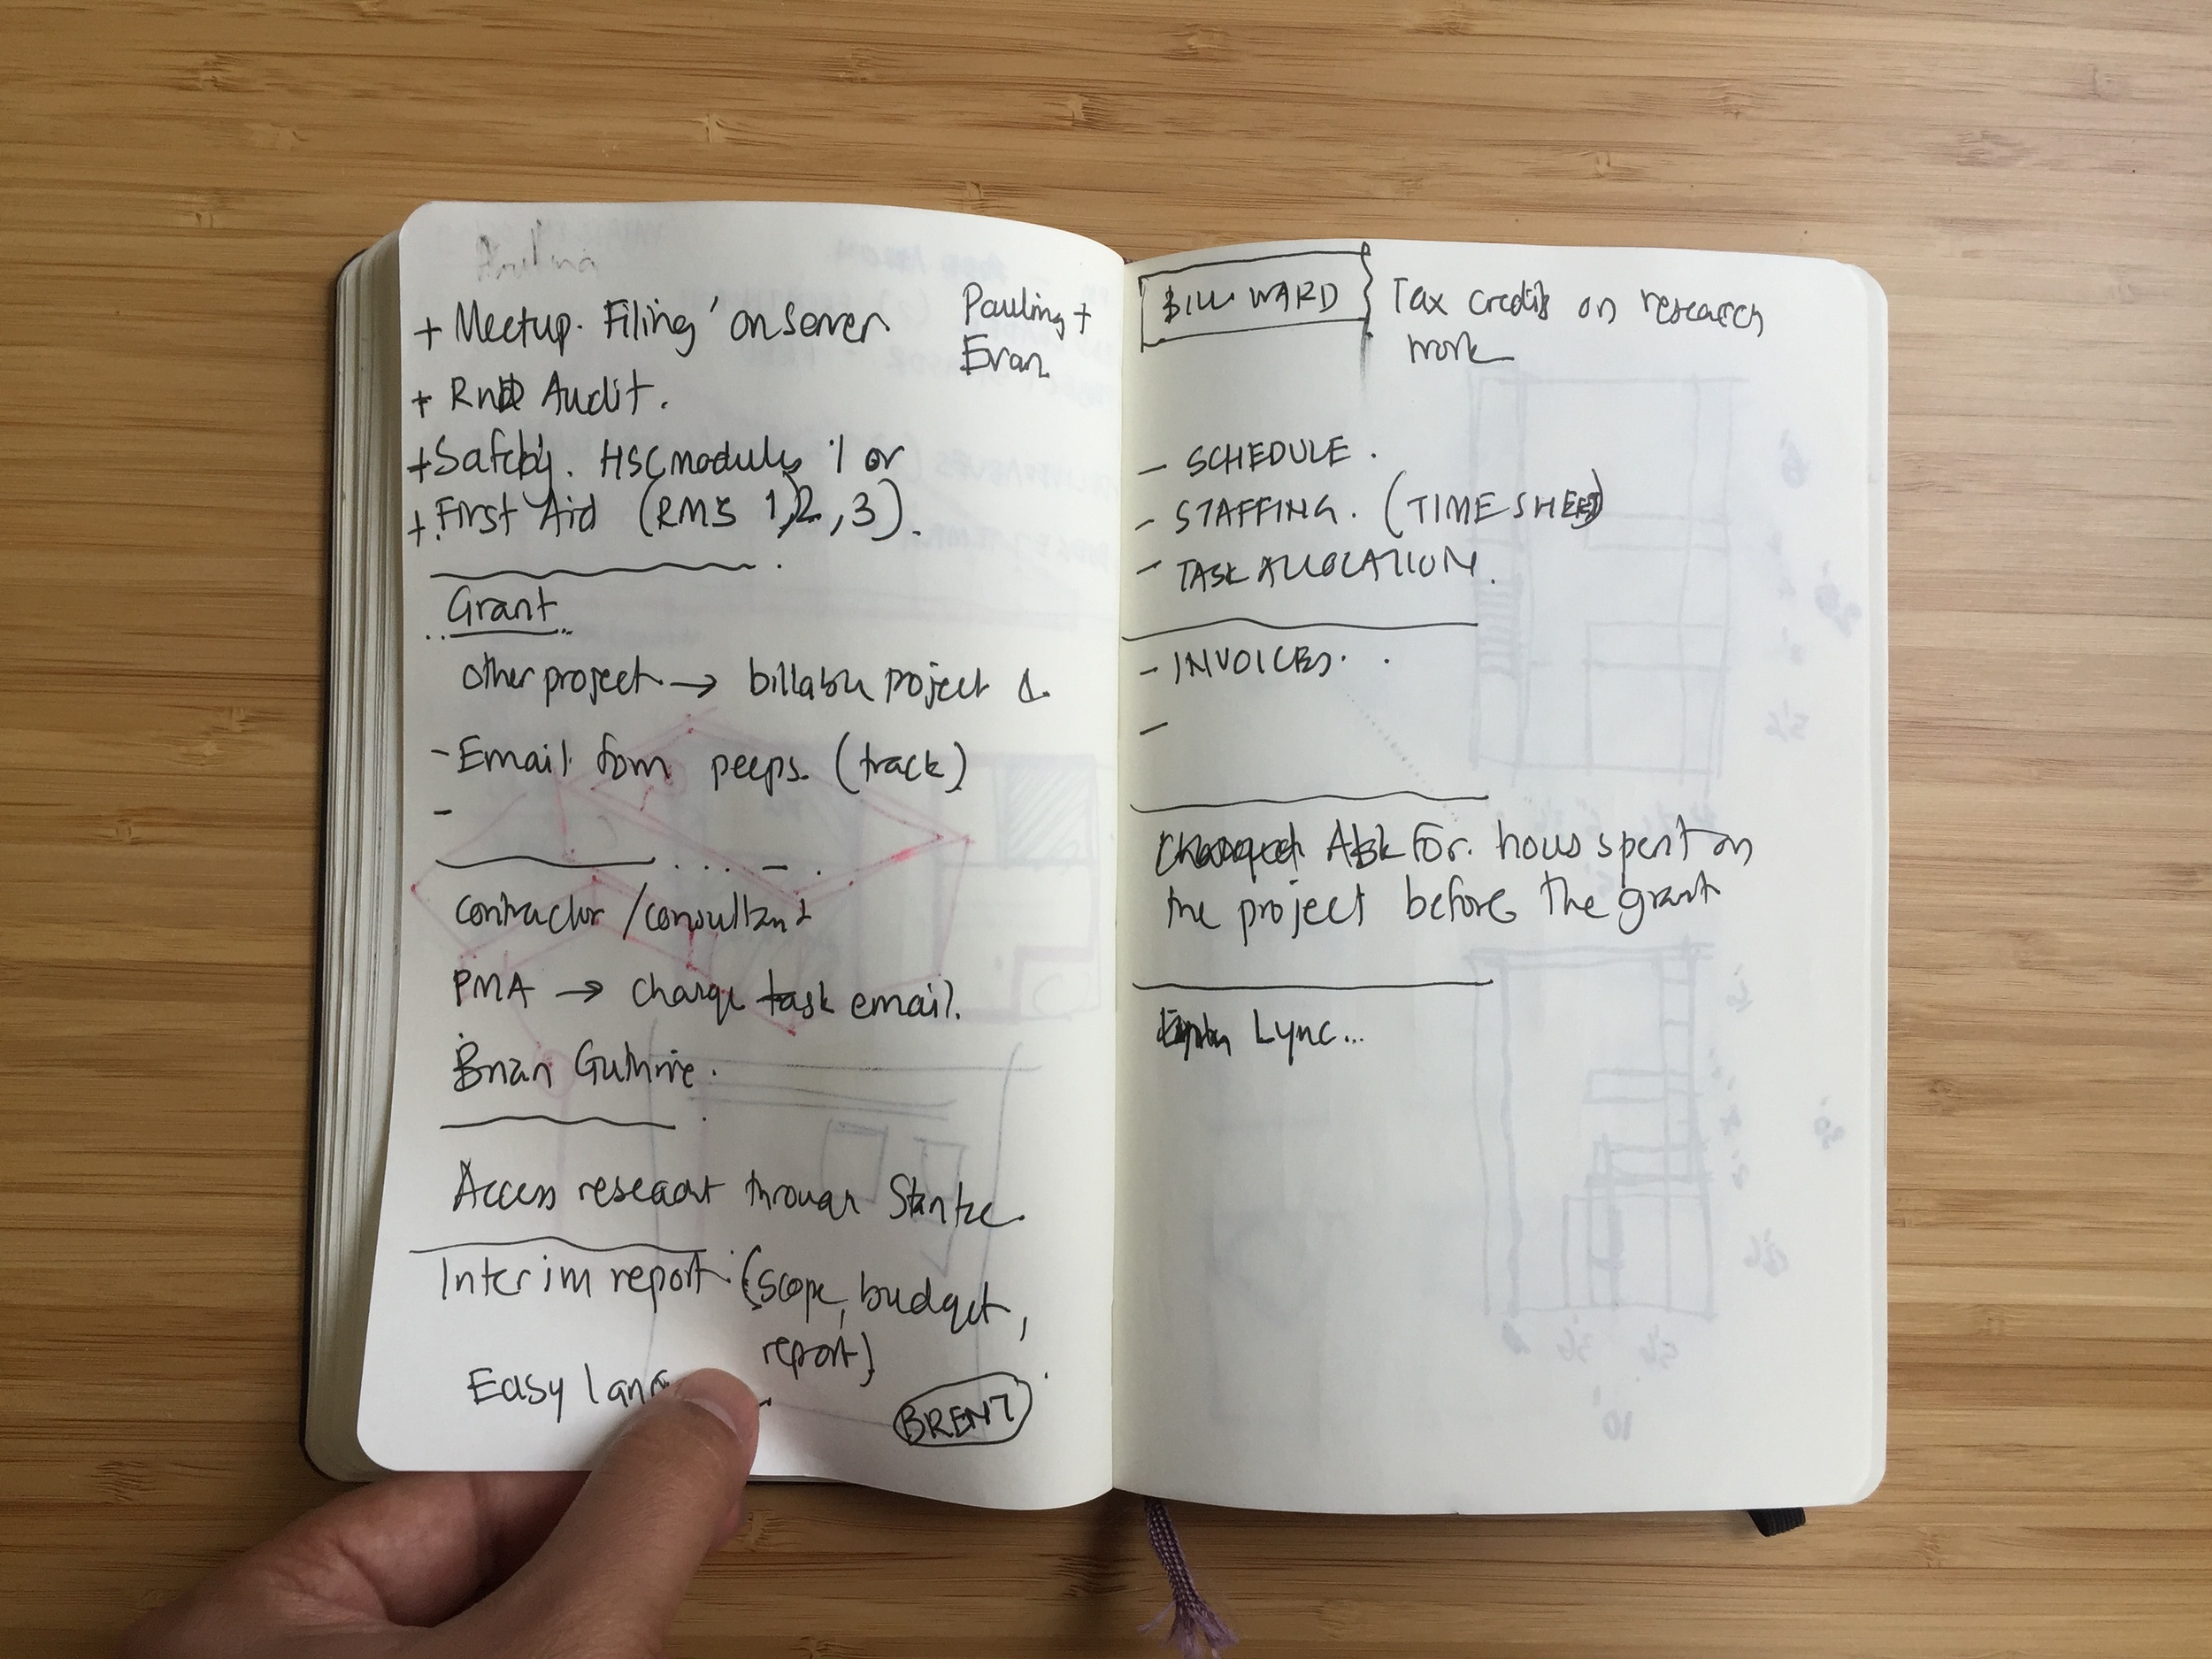 + Meetup. Filing on server
Pauling +
Evan
+ RnD Audit.
+ Safety. HSC modules 1 or
+ First Aid (RMS 1, 2, 3).
Grant
other project → billable poject
- Email fom peeps. (track)
-
contractor / consultant
PMA → charge task email.
Brian Guthrie.
Access reseach through Stantec.
Interim report. (scope, budget,
report)
Easy
BRENT
BILL WARD
Tax credits on research
work
- SCHEDULE.
- STAFFING. (TIME SHEET)
- TASK ALLOCATION.
- INVOICES.
-
Ask for. hous spent on
the project before the grant
Lync...